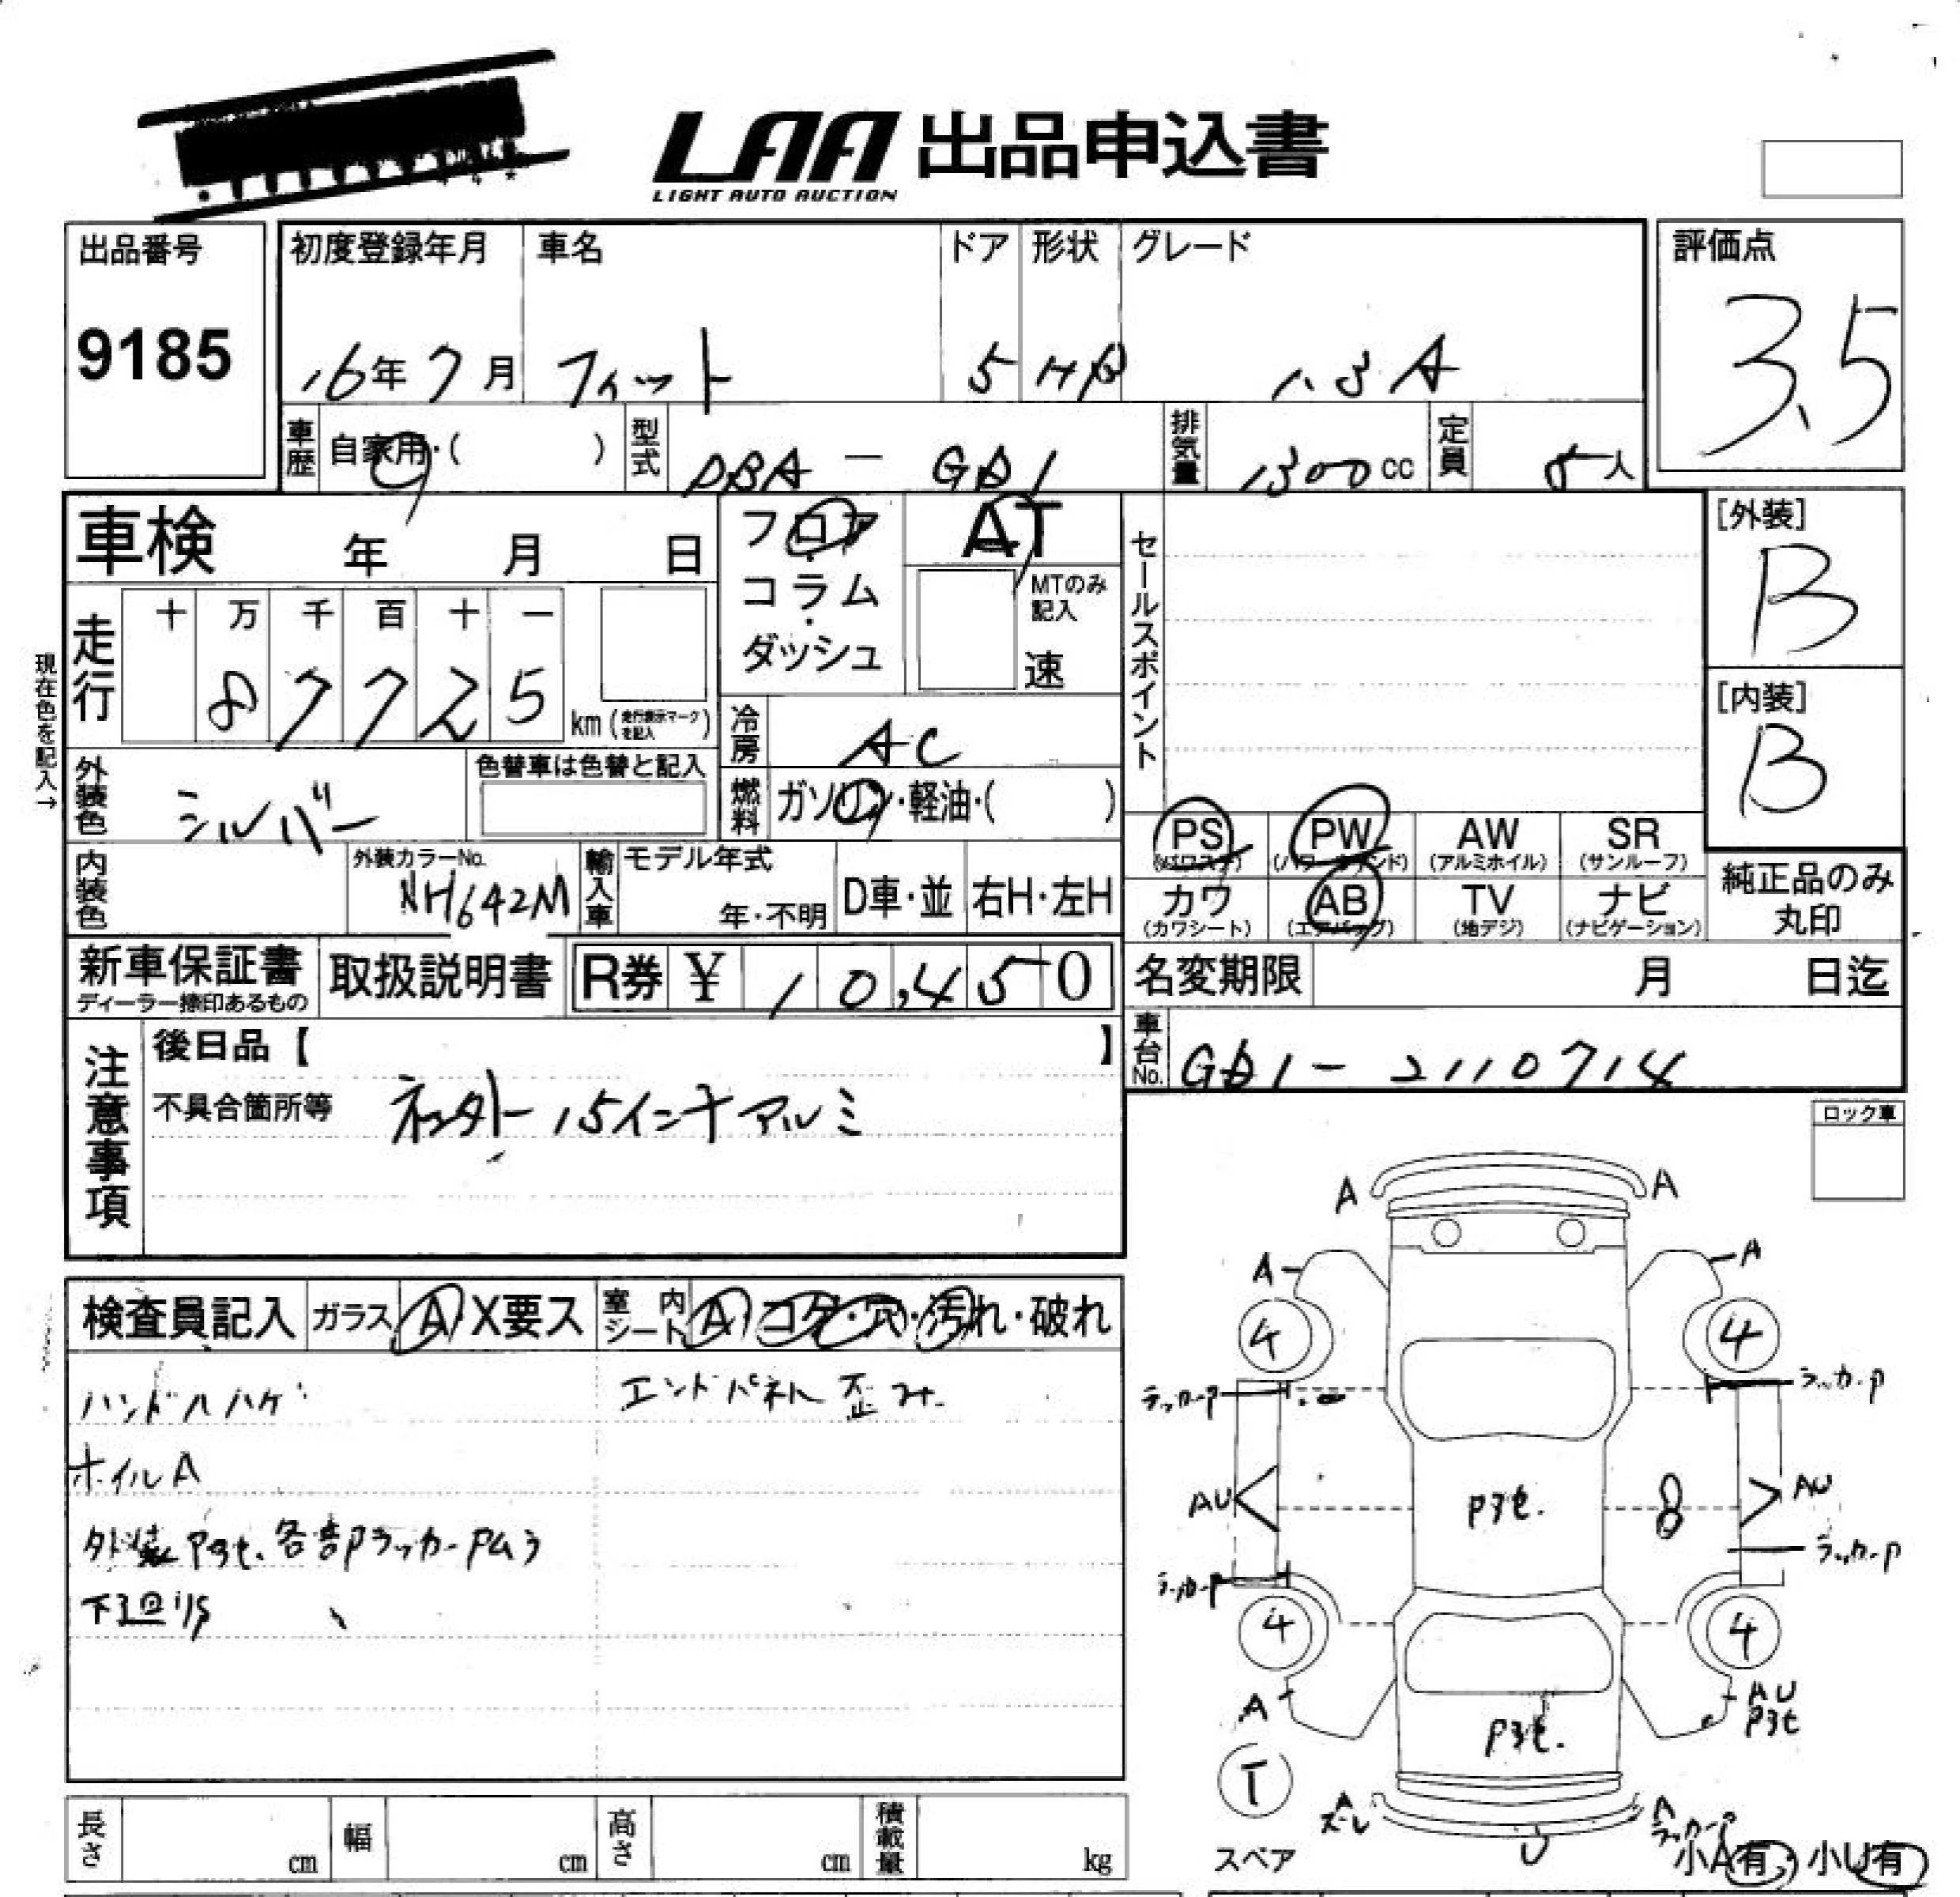 LAA 出品申込書
LIGHT AUTO AUCTION
出品番号
9185
初度登録年月
16年7月
車名
フィット
ドア
5
形状
HB
グレード
1.3A
評価点
3.5
車歴
自家用・( )
型式
DBA - GD1
排気量
1300cc
定員
5人
車検 年 月 日
フロア
・
コラム
・
ダッシュ
AT
MTのみ
記入
速
セールスポイント
[外装]
B
[内装]
B
現在色を記入→
走行
十 万 千 百 十 一
8 7 7 2 5
km (走行表示マークを記入)
冷房
AC
外装色
シルバー
色替車は色替と記入
燃料
ガソリン・軽油・( )
内装色
外装カラーNo.
NH642M
輸入車
モデル年式
年・不明
D車・並
右H・左H
PS
(パワステ)
PW
(パワーウインド)
AW
(アルミホイル)
SR
(サンルーフ)
カワ
(カワシート)
AB
(エアバッグ)
TV
(地デジ)
ナビ
(ナビゲーション)
純正品のみ
丸印
新車保証書
ディーラー捺印あるもの
取扱説明書
R券 ¥ 10,450
名変期限 月 日迄
車台No.
GD1-2110714
注意事項
後日品【 】
不具合箇所等
社外15インチアルミ
ロック車
検査員記入
ガラス A X要ス
室内シート A コゲ・穴・汚れ・破れ
ハンドルハゲ
エンドパネル歪み
ホイルA
外装Pヨセ.各部PラッカーPム3
下回りS
A
A
A
A
4
4
ラッカーP
ラッカーP
AU
Pヨセ.
8
AU
ラッカーP
ラッカーP
4
4
A
AU
Pヨセ
Pヨセ.
T
スペア
A
ズレ
U
A
ラッカーP
小A有・小U有
長さ cm
幅 cm
高さ cm
積載量 kg